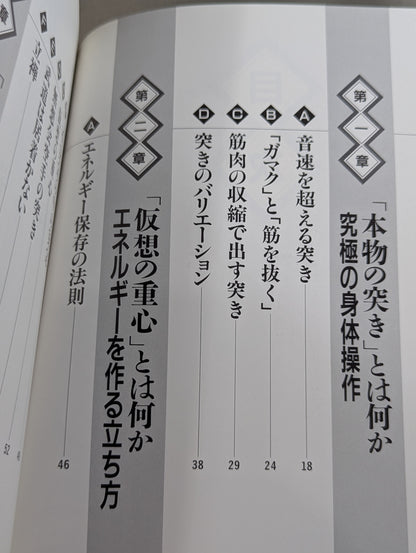 第一章
「本物の突き」とは何か
究極の身体操作
A 音速を超える突き 18
B 「ガマク」と「筋を抜く」 24
C 筋肉の収縮で出す突き 29
D 突きのバリエーション 38
第二章
「仮想の重心」とは何か
エネルギーを作る立ち方
A エネルギー保存の法則 46
52